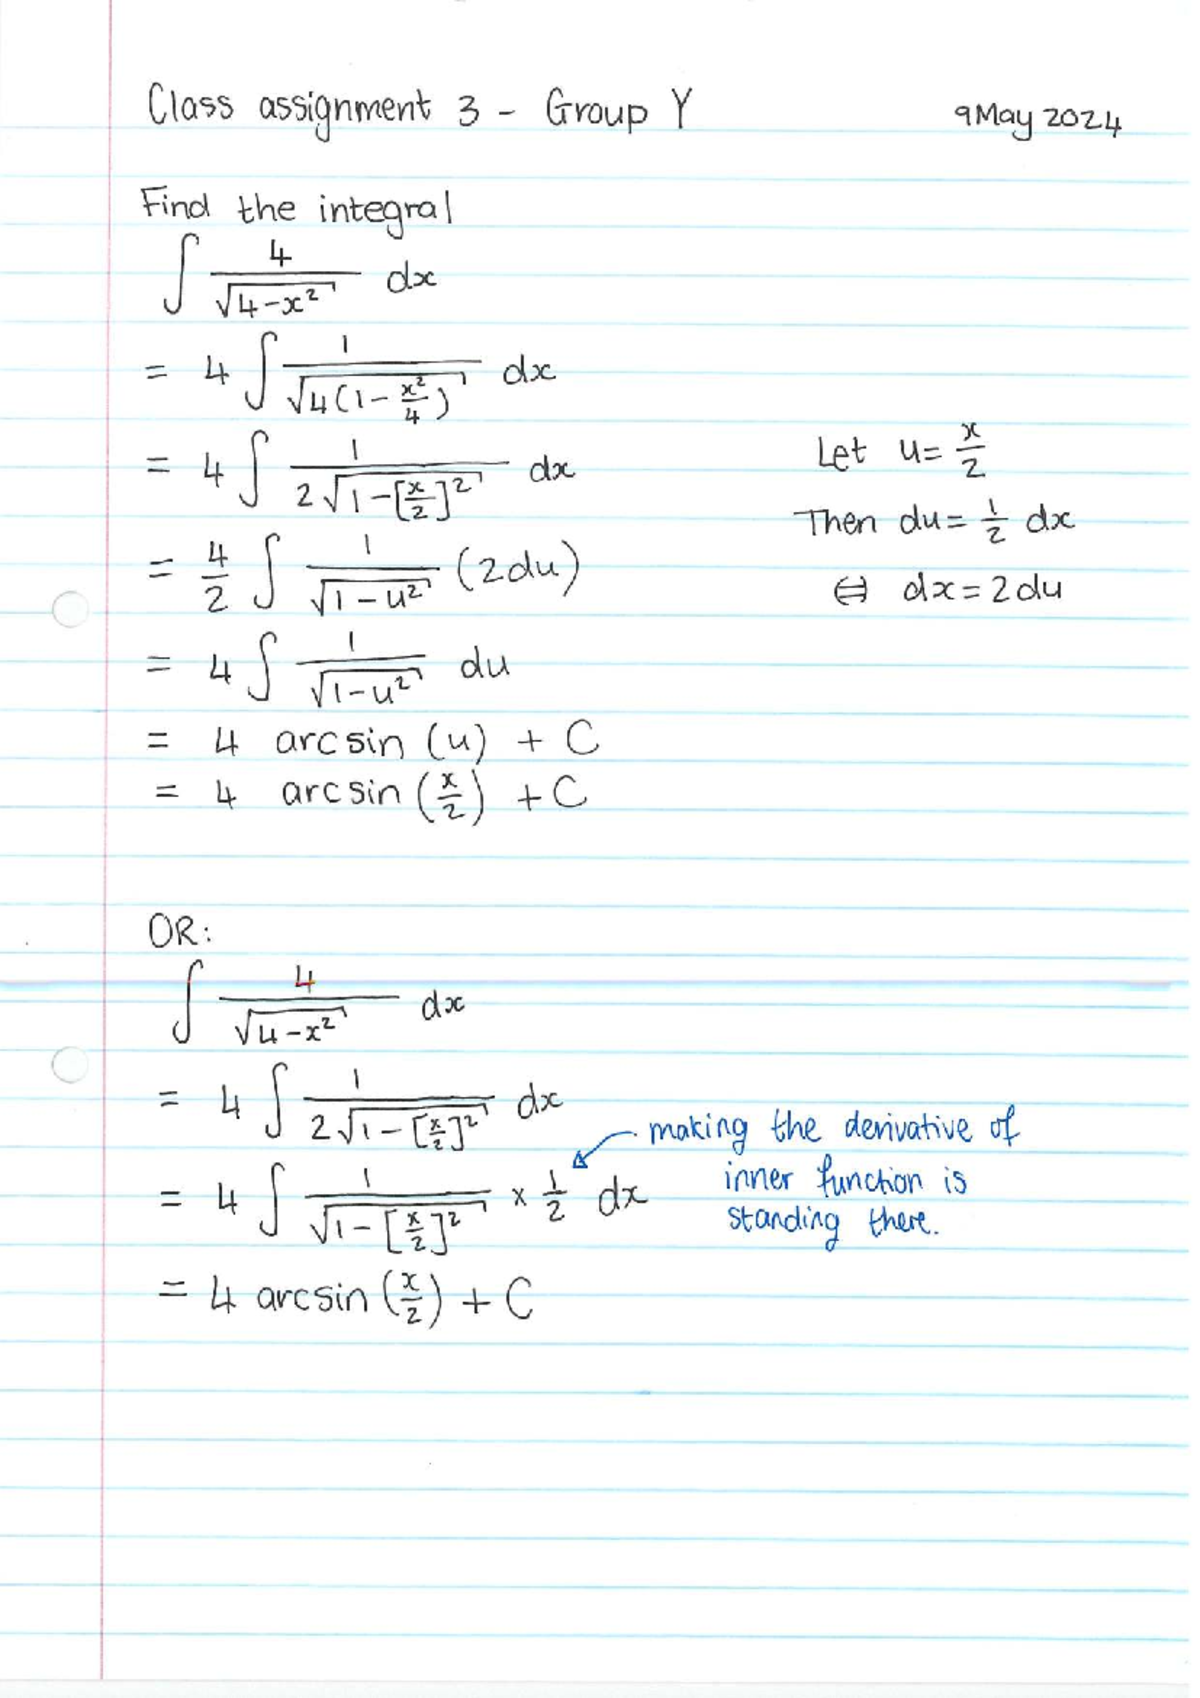 Class assignment 3 - Group Y
9 May 2024
Find the integral
∫ 4/√(4-x²) dx
= 4 ∫ 1/√(4(1-x²/4)) dx
= 4 ∫ 1/(2√(1-[x/2]²)) dx
Let u = x/2
Then du = 1/2 dx
= 4/2 ∫ 1/√(1-u²) (2du)
⇔ dx = 2du
= 4 ∫ 1/√(1-u²) du
= 4 arcsin (u) + C
= 4 arcsin (x/2) + C
OR:
∫ 4/√(4-x²) dx
= 4 ∫ 1/(2√(1-[x/2]²)) dx
making the derivative of
inner function is
standing there.
= 4 ∫ 1/√(1-[x/2]²) × 1/2 dx
= 4 arcsin (x/2) + C